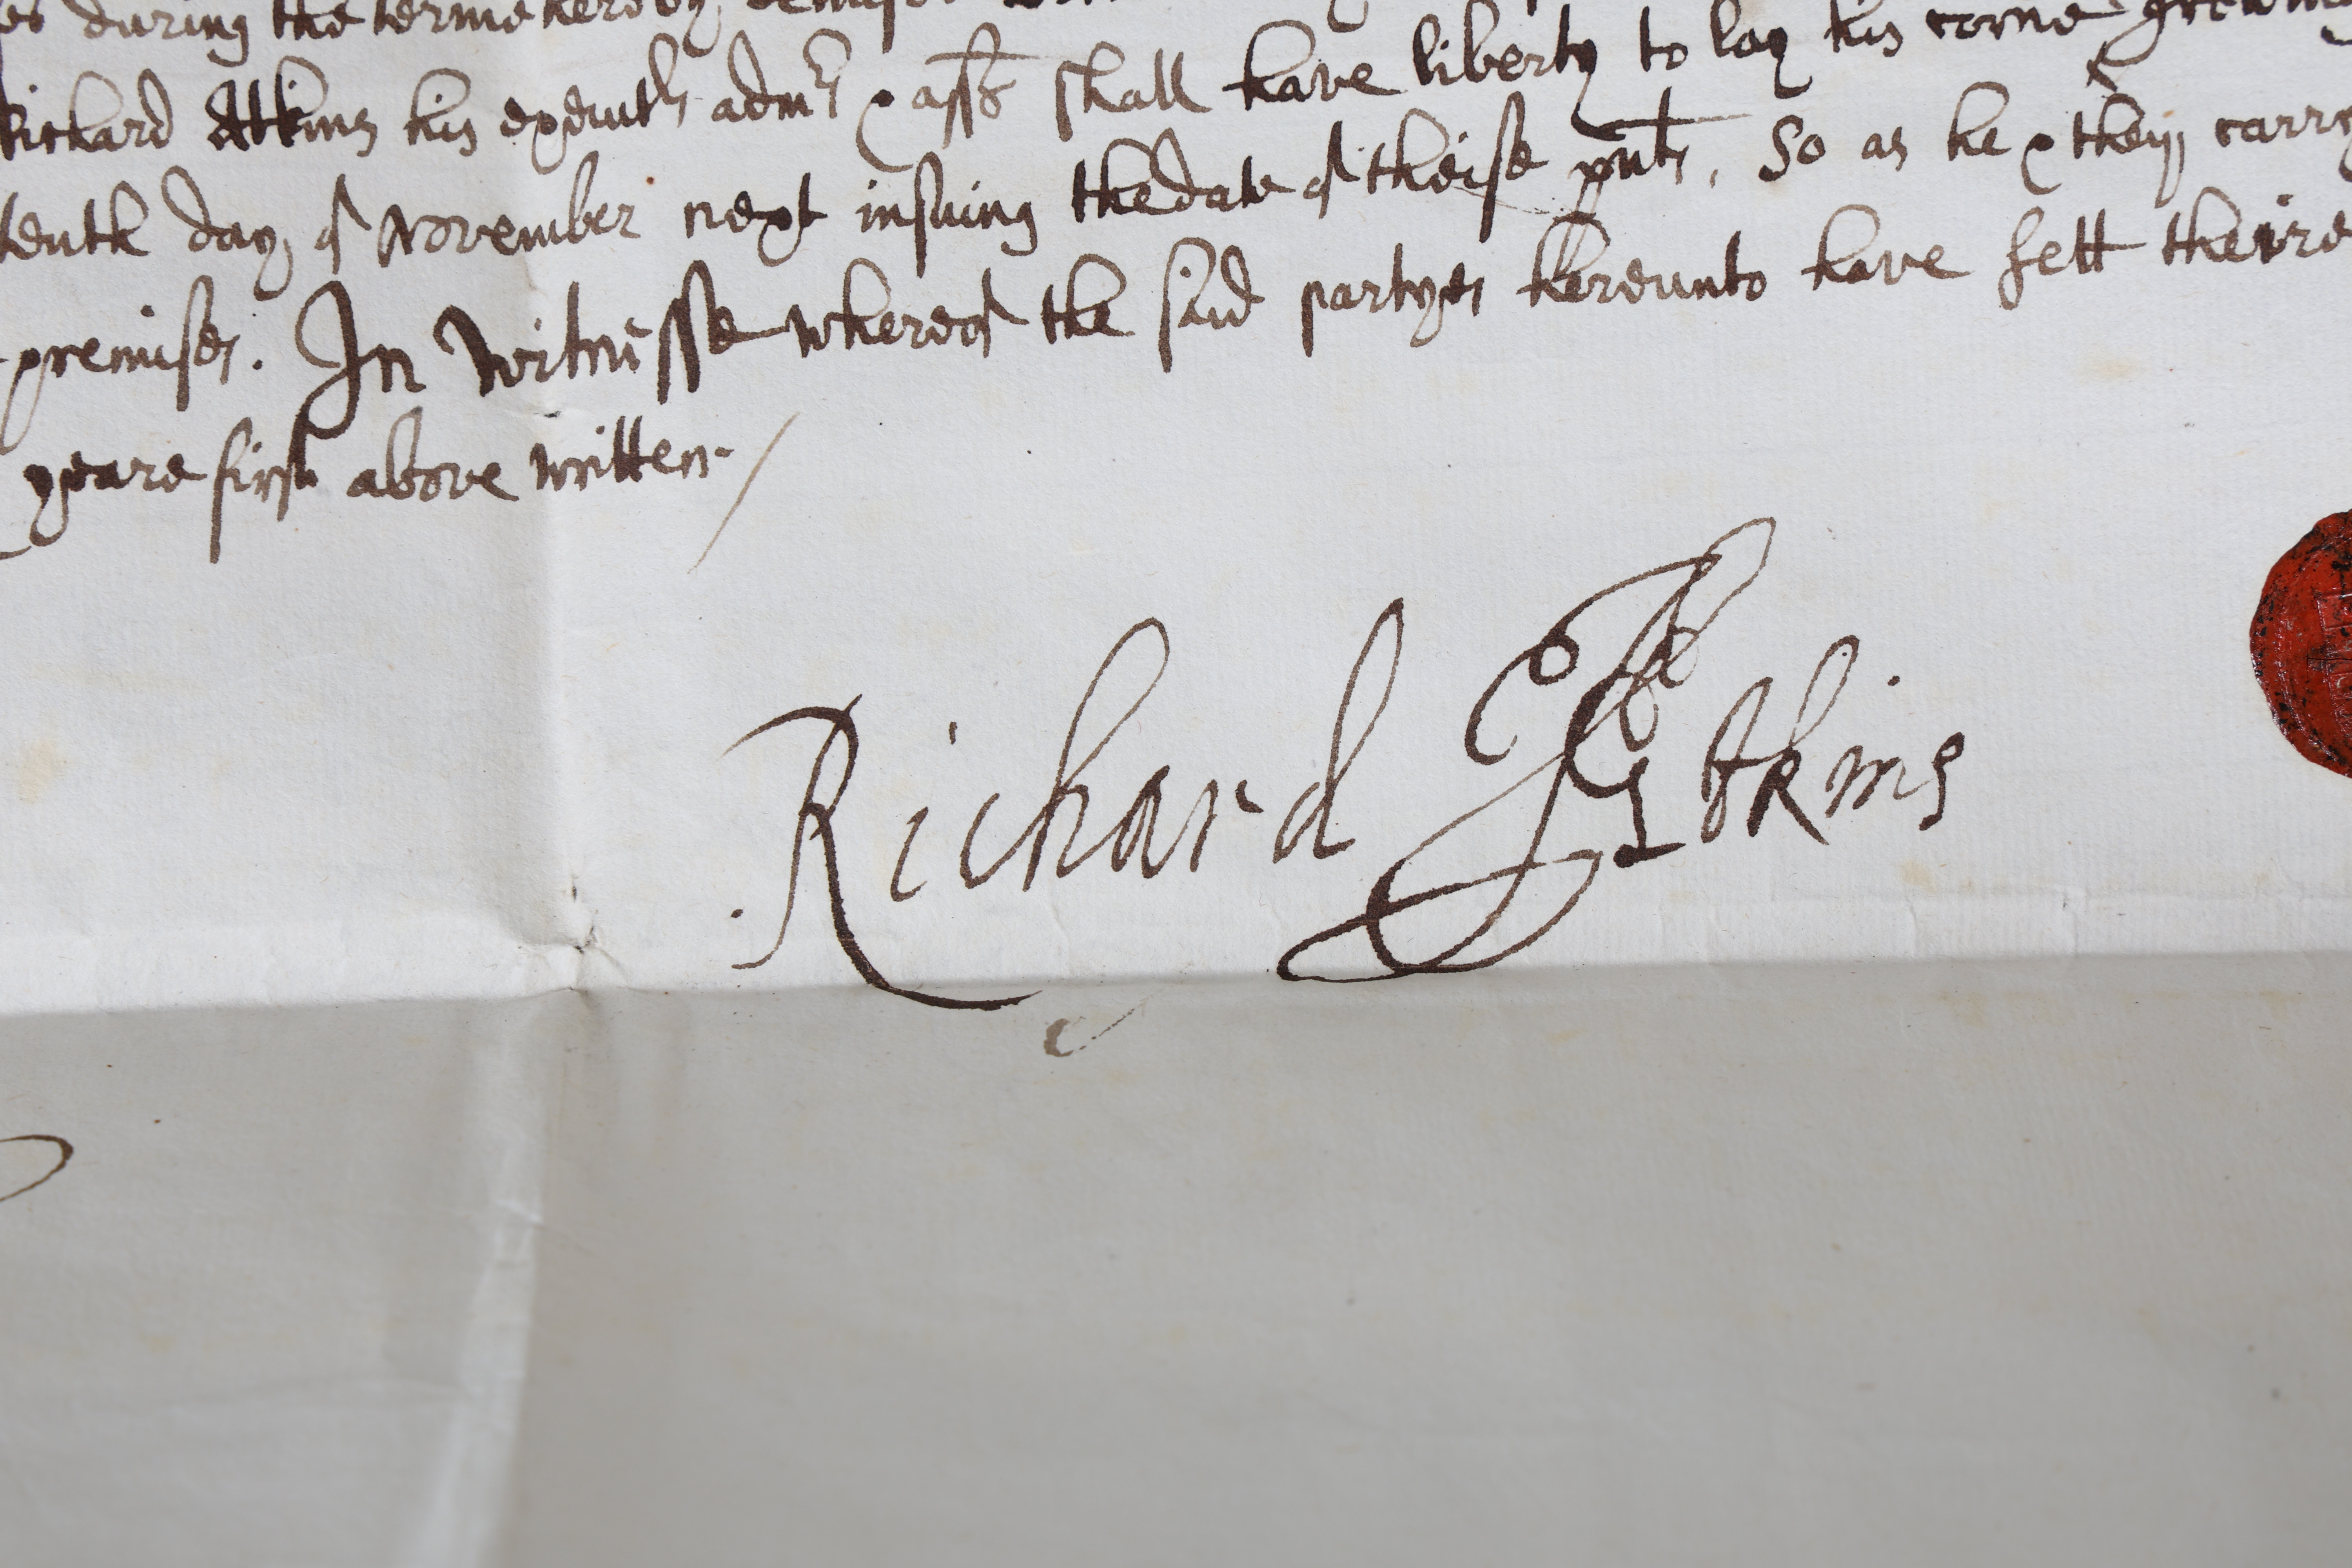 during the terme hereby
Richard Atkins his execut^rs adm^rs & ass^s shall have liberty to lay his corne growing
tenth day of November next insuing the date of theise pnts, So as he & they carry
premises. In Witnesse whereof the said partyes hereunto have sett theire
yeare first above written
Richard Atkins